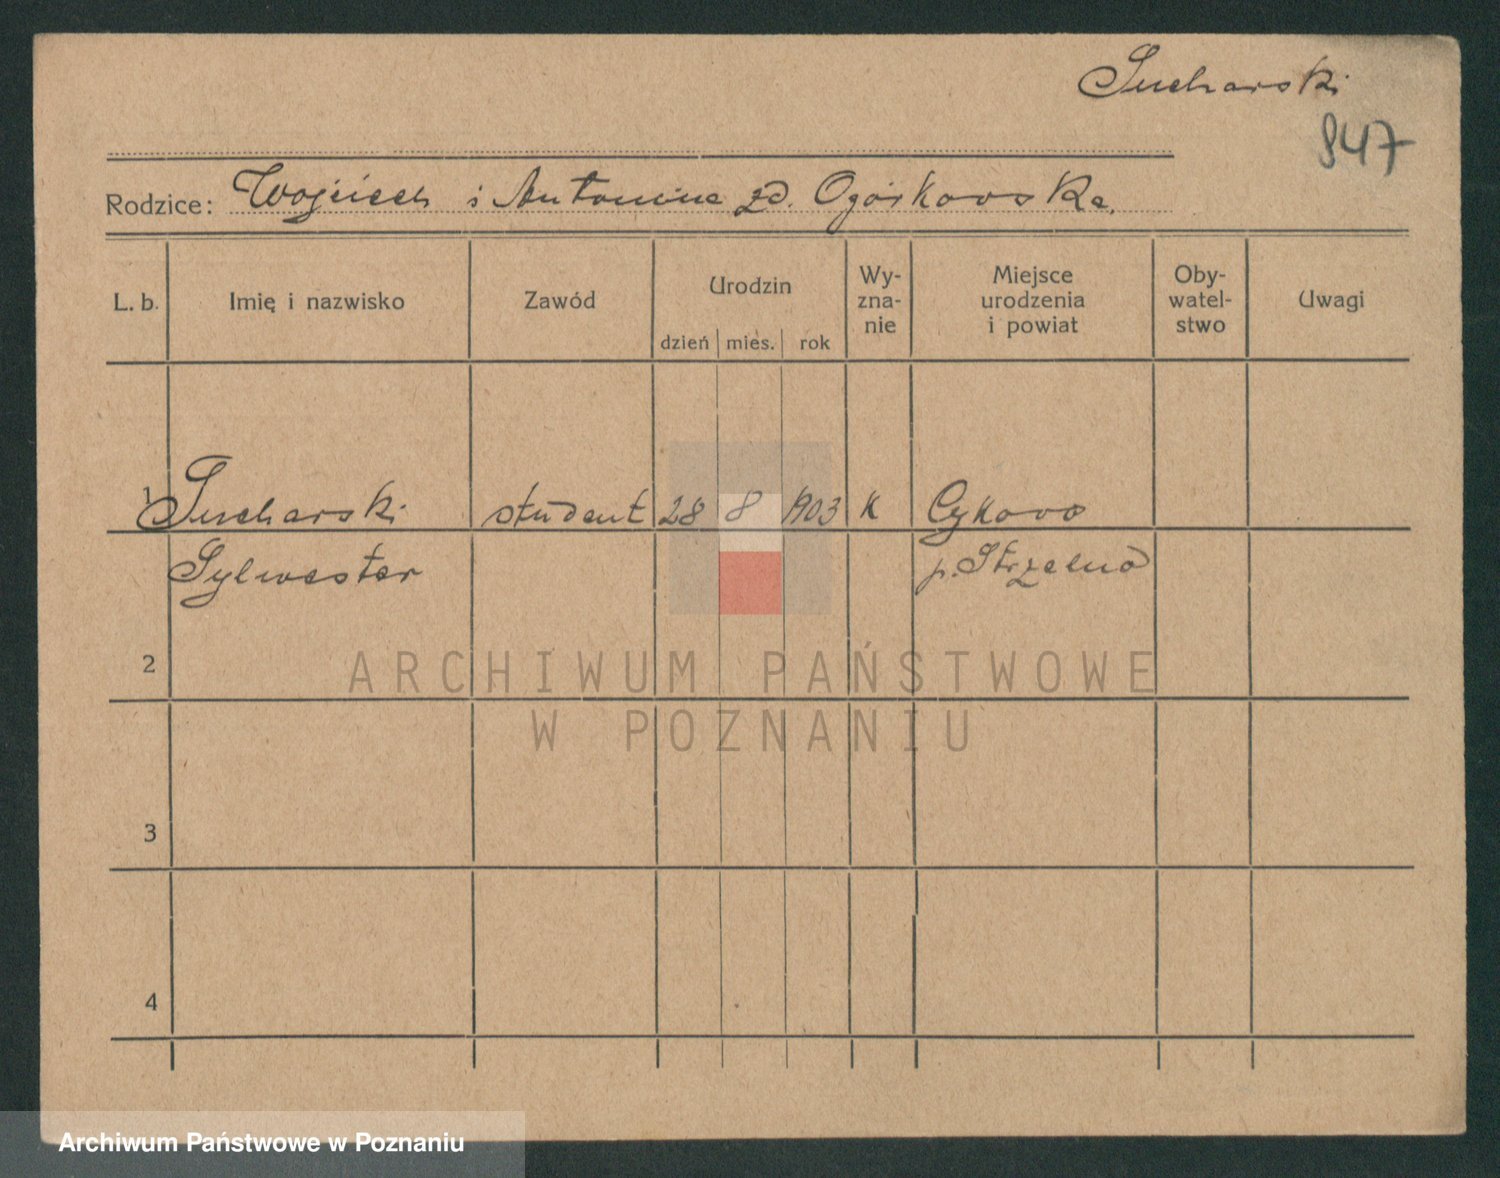 Sucharski
947
Rodzice: Wojciech i Antonina zd. Ogórkowska.
L. b. Imię i nazwisko Zawód Urodzin dzień mies. rok Wy-zna-nie Miejsce urodzenia i powiat Oby-watel-stwo Uwagi
1 Sucharski student 28 8 1903 K Cykowo
Sylwester p. Strzelno
2
3
4
ARCHIWUM PAŃSTWOWE
W POZNANIU
Archiwum Państwowe w Poznaniu